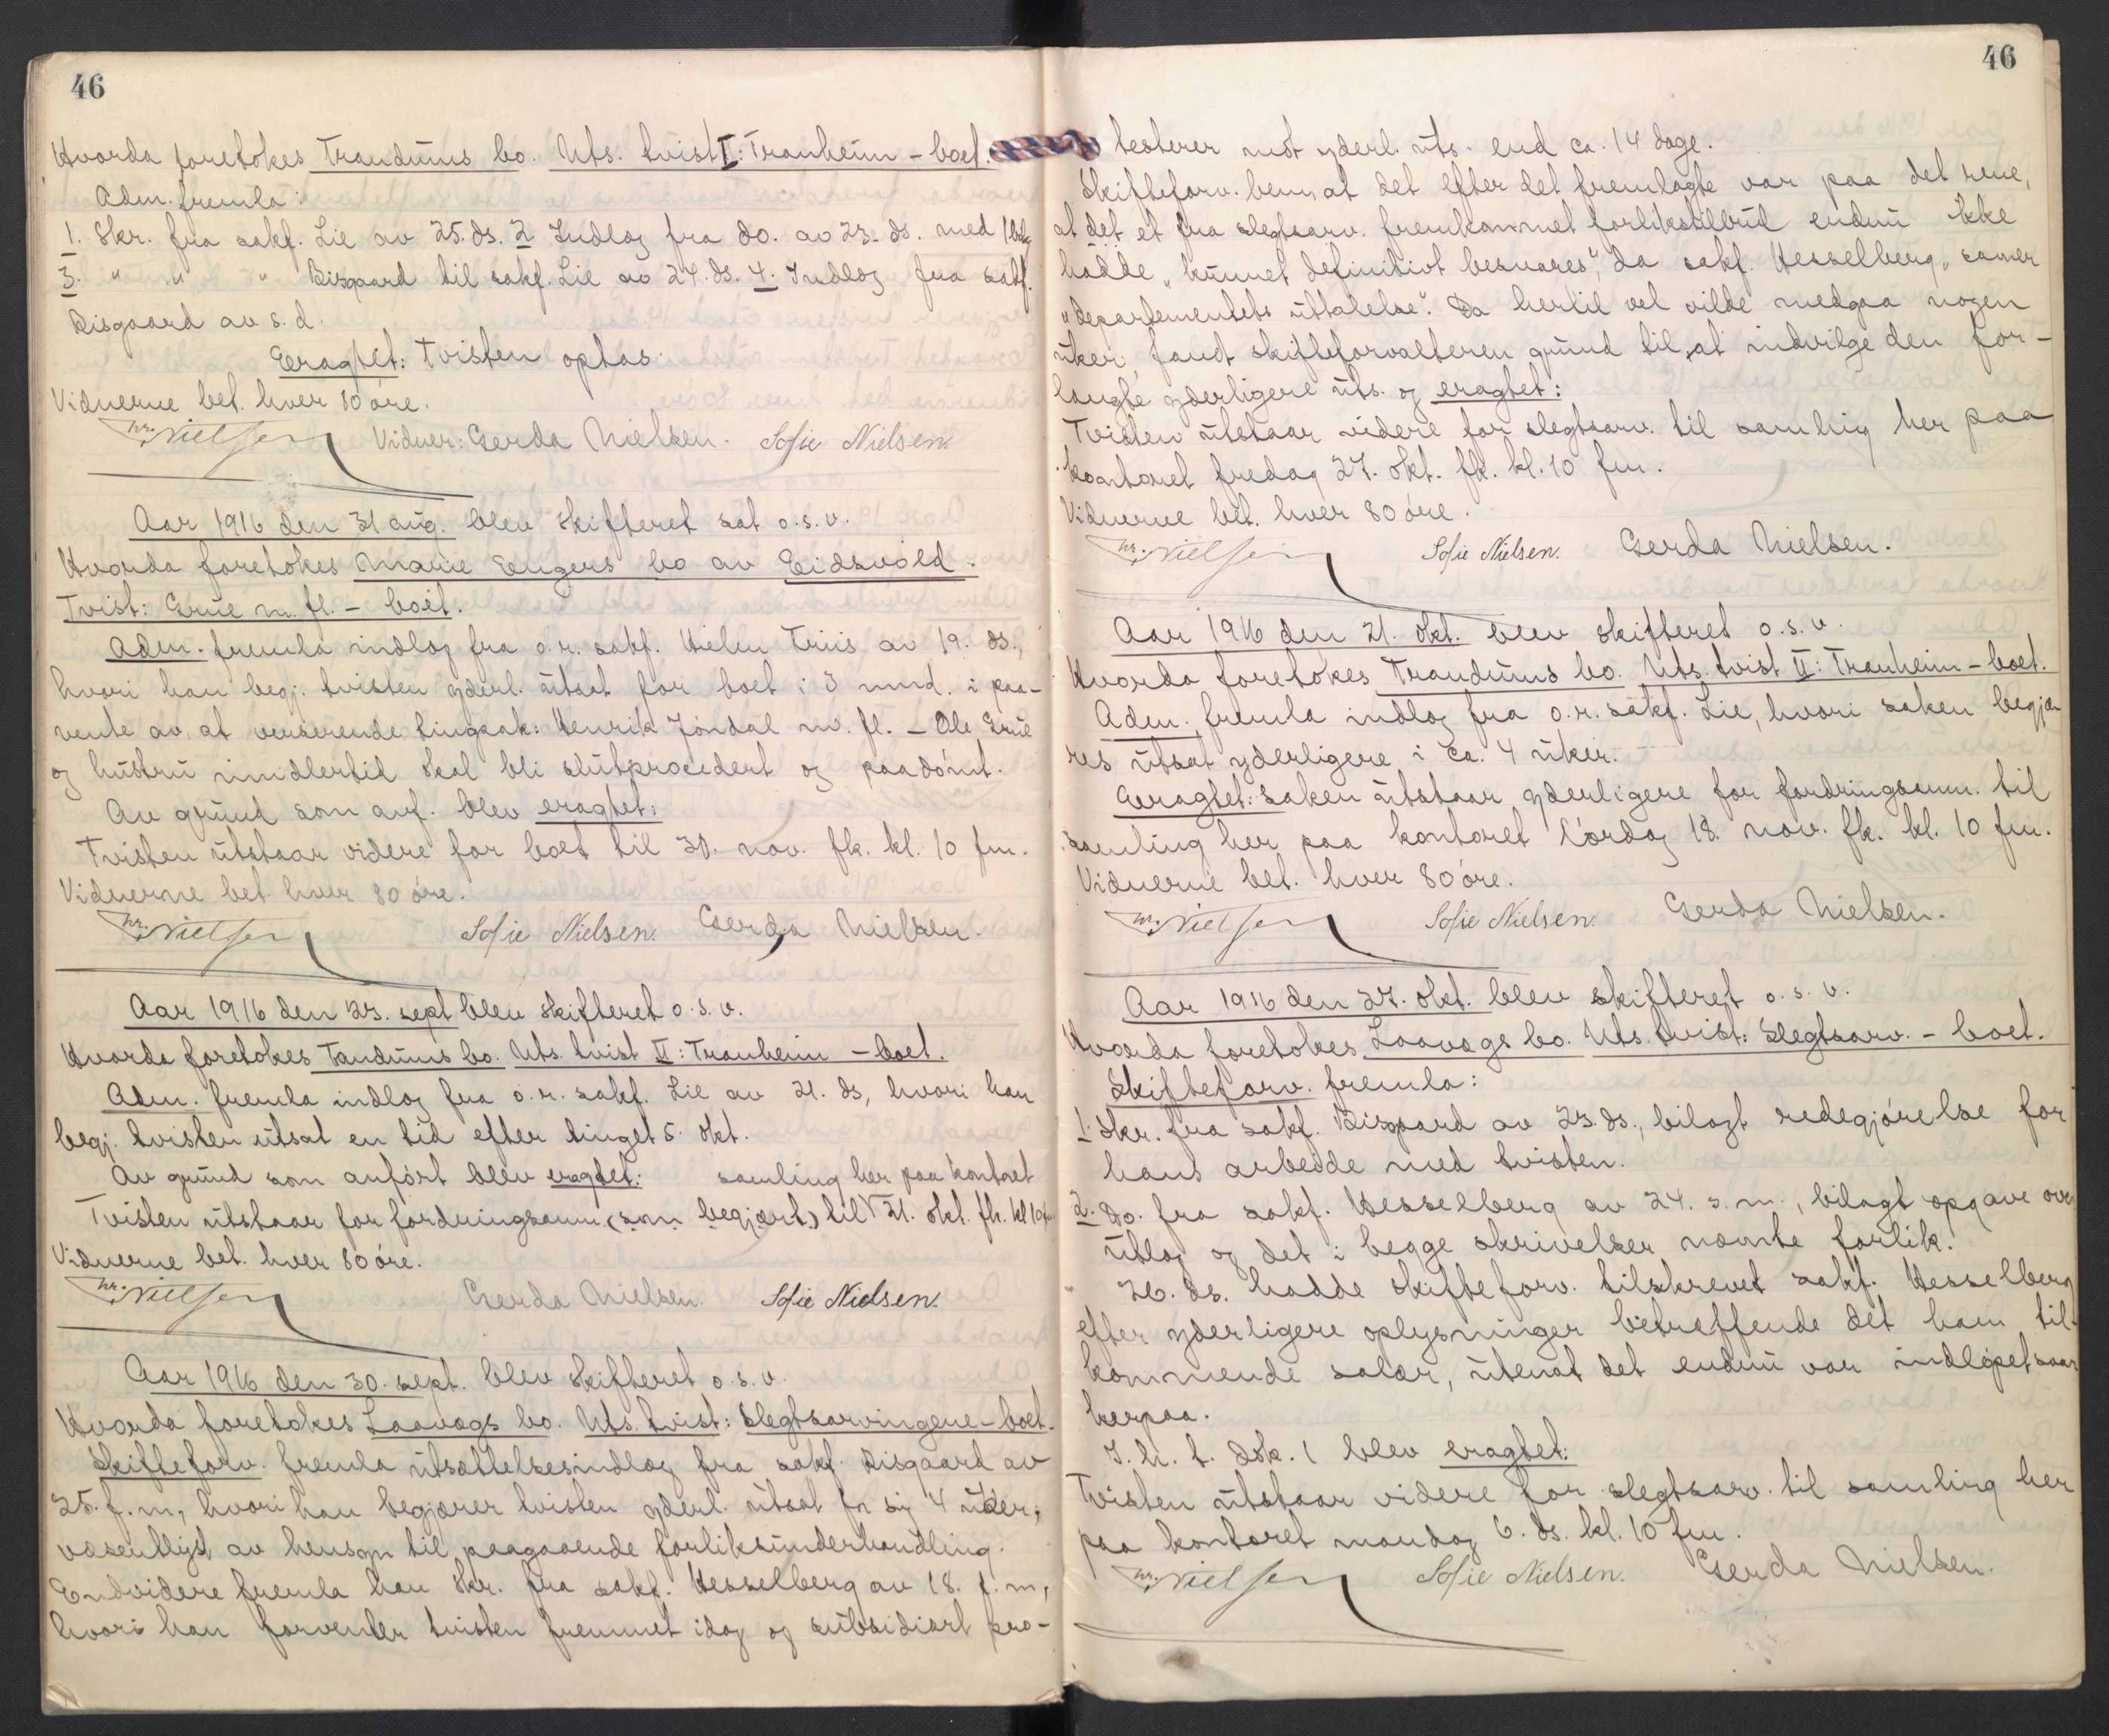 46
Hvorda foretokes Trandums bo. Uts. tvist I: Tranheim – boet.
Adm. fremla:
1. Skr. fra sakf. Lie av 25. ds. 2 Indlæg fra do. av 23. ds. med 1 bilag
3. " " " Bisgaard til sakf. Lie av 24. ds. 4. Indlæg fra sakf.
Bisgaard av s. d.
Eragtet: Tvisten optas.
Vidnerne bet. hver 80 øre.
W. Nielsen Vidner: Gerda Nielsen. Sofie Nielsen.
Aar 1916 den 31 aug. blev skifteret sat o. s. v.
Hvorda foretokes Marie Engers bo av Eidsvold.
Tvist: Grue m. fl. – boet.
Adm. fremla indlæg fra o. r. sakf. Hielm Friis av 19. ds.,
hvori han begj. tvisten yderl. utsat for boet i 3 mnd. i paa-
vente av, at verserende tingsak: Henrik Jøndal m. fl. – Ole Grue
og hustru imidlertid skal bli slutprocedert og paadømt.
Av grund som anf. blev eragtet:
Tvisten utstaar videre for boet til 30. nov. fk. kl. 10 fm.
Vidnerne bet. hver 80 øre.
W. Nielsen Sofie Nielsen. Gerda Nielsen.
Aar 1916 den 23. sept blev skifteret o. s. v.
Hvorda foretokes Tandums bo. Uts. tvist II: Tranheim – boet.
Adm. fremla indlæg fra o. r. sakf. Lie av 21. ds, hvori han
begj. tvisten utsat en tid efter tinget 5. okt.
Av grund som anført blev eragtet: samling her paa kontoret
Tvisten utstaar for fordringsanm. (som begjært) til 21. okt. fk. kl 10 fm
Vidnerne bet. hver 80 øre.
W. Nielsen Gerda Nielsen. Sofie Nielsen.
Aar 1916 den 30. sept. blev skifteret o. s. v.
Hvorda foretokes Laavægs bo. Uts. tvist: Slegtsarvingene – boet.
Skifteforv. fremla utsættelsesindlæg fra sakf. Bisgaard av
25. f. m, hvori han begjærer tvisten yderl. utsat for sig 4 uker,
væsentligst av hensyn til paagaaende forliksunderhandling.
Endvidere fremla han skr. fra sakf. Hesselberg av 18. f. m,
hvori han forventer tvisten fremmet idag og subsidiært pro-
46
testerer mot yderl. uts. end ca. 14 dage.
Skifteforv. bem, at det efter det fremlagte var paa det rene,
at det et fra slegtsarv. fremkommet forlikstilbud endnu ikke
hadde „kunnet definitivt besvares", da sakf. Hesselberg „savner
„departementets uttalelse". Da hertil vel vilde medgaa nogen
uker, fandt skifteforvalteren grund til, at indvilge den for-
langte yderligere uts. og eragtet:
Tvisten utstaar videre for slegtsarv. til samling her paa
kontoret fredag 27. okt. fk. kl. 10 fm.
Vidnerne bet. hver 80 øre.
W. Nielsen Sofie Nielsen. Gerda Nielsen.
Aar 1916 den 21. okt. blev skifteret o. s. v.
Hvorda foretokes Trandums bo. Uts. tvist II: Tranheim – boet.
Adm. fremla indlæg fra o. r. sakf. Lie, hvori saken begjæ
res utsat yderligere i ca. 4 uker.
Eragtet: Saken utstaar yderligere for fordringsanm. til
samling her paa kontoret lørdag 18. nov. fk. kl. 10 fm.
Vidnerne bet. hver 80 øre.
W. Nielsen Sofie Nielsen. Gerda Nielsen.
Aar 1916 den 27. okt. blev skifteret o. s. v.
Hvorda foretokes Laavægs bo. Uts. tvist: Slegtsarv. – boet.
Skifteforv. fremla:
1. Skr. fra sakf. Bisgaard av 23. ds., bilagt redegjørelse for
hans arbeide med tvisten.
2. Do. fra sakf. Hesselberg av 24. s. m., bilagt opgave over
utlæg og det i begge skrivelser nævnte forlik.
26. ds. hadde skifteforv. tilskrevet sakf. Hesselberg
efter yderligere oplysninger betræffende det ham til-
kommende salær, utenat det endnu var indløpet svar
herpaa.
I. h. t. dok. 1 blev eragtet:
Tvisten utstaar videre for slegtsarv. til samling her
paa kontoret mandag 6. ds. kl. 10 fm.
W. Nielsen Sofie Nielsen. Gerda Nielsen.